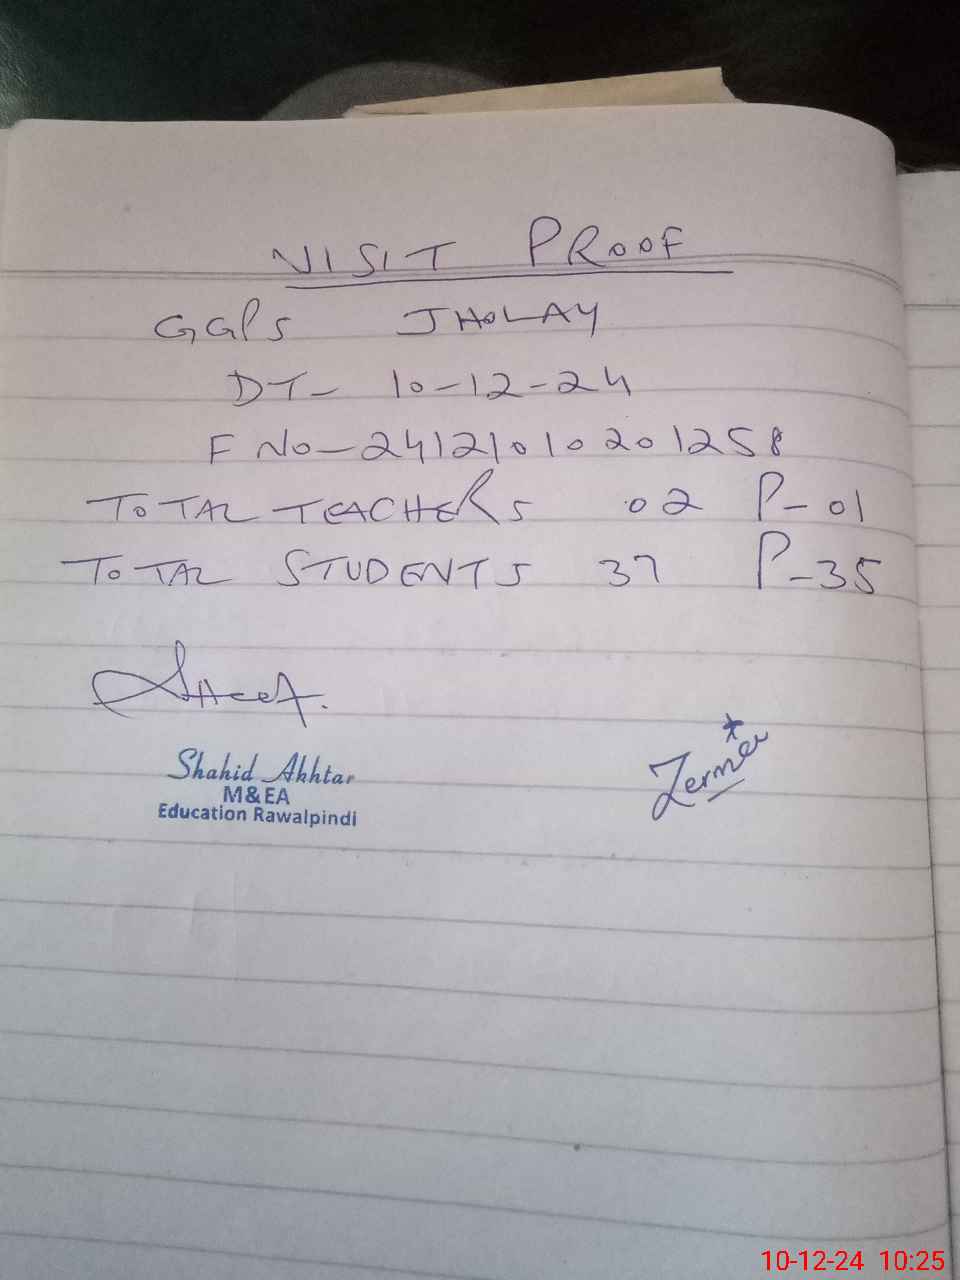 VISIT PROOF
GGPS JHOLAY
DT- 10-12-24
F No-24121010201258
TOTAL TEACHERS 02 P-01
TOTAL STUDENTS 37 P-35
Shahid Akhtar
M&EA
Education Rawalpindi
10-12-24 10:25